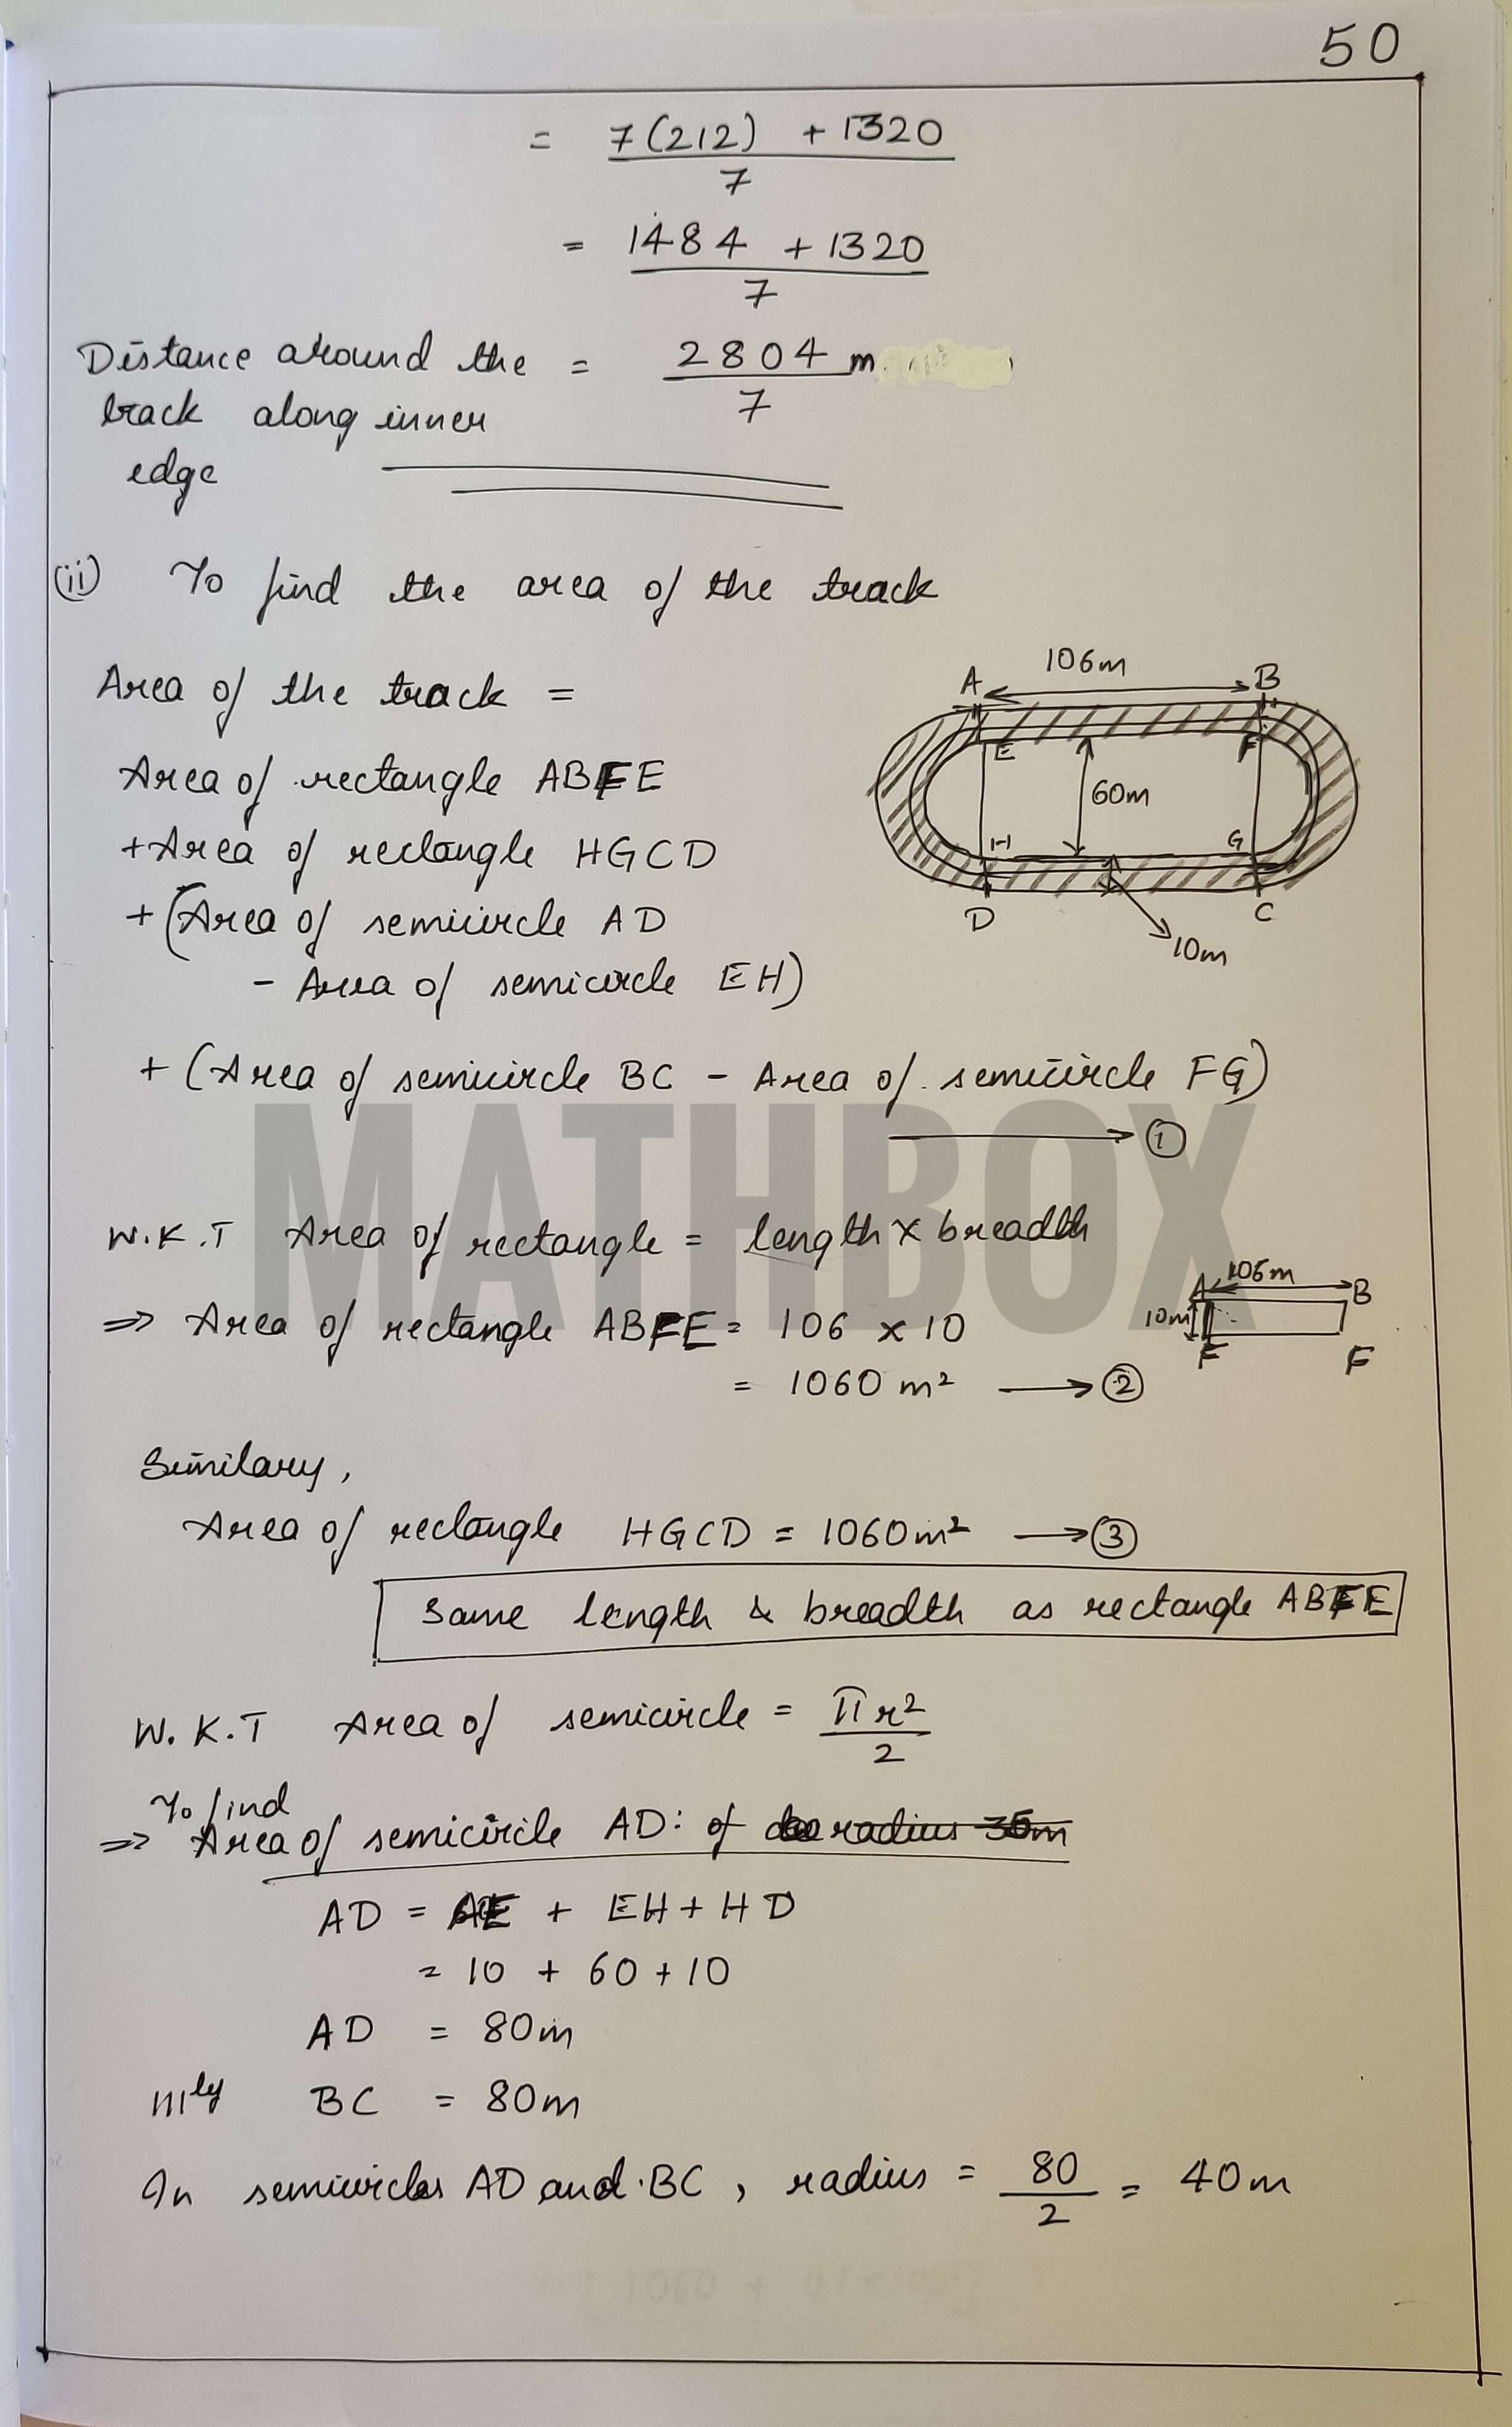 50
= 7(212) + 1320
7
= 1484 + 1320
7
Distance around the = 2804 m
7
track along inner
edge
(ii) To find the area of the track
Area of the track =
Area of rectangle ABFE
+ Area of rectangle HGCD
+ (Area of semicircle AD
- Area of semicircle EH)
106m
A B
E F
60m
H G
D C
10m
+ (Area of semicircle BC - Area of semicircle FG)
→ ①
MATHBOX
W.K.T Area of rectangle = length × breadth
⇒ Area of rectangle ABFE = 106 × 10
= 1060 m² → ②
106m
A B
10m
E F
Similary,
Area of rectangle HGCD = 1060m² → ③
Same length & breadth as rectangle ABFE
W.K.T Area of semicircle = πr²
2
To find
⇒ Area of semicircle AD: of radius 35m
AD = AE + EH + HD
= 10 + 60 + 10
AD = 80m
lllly BC = 80m
In semicircles AD and BC, radius = 80 = 40m
2